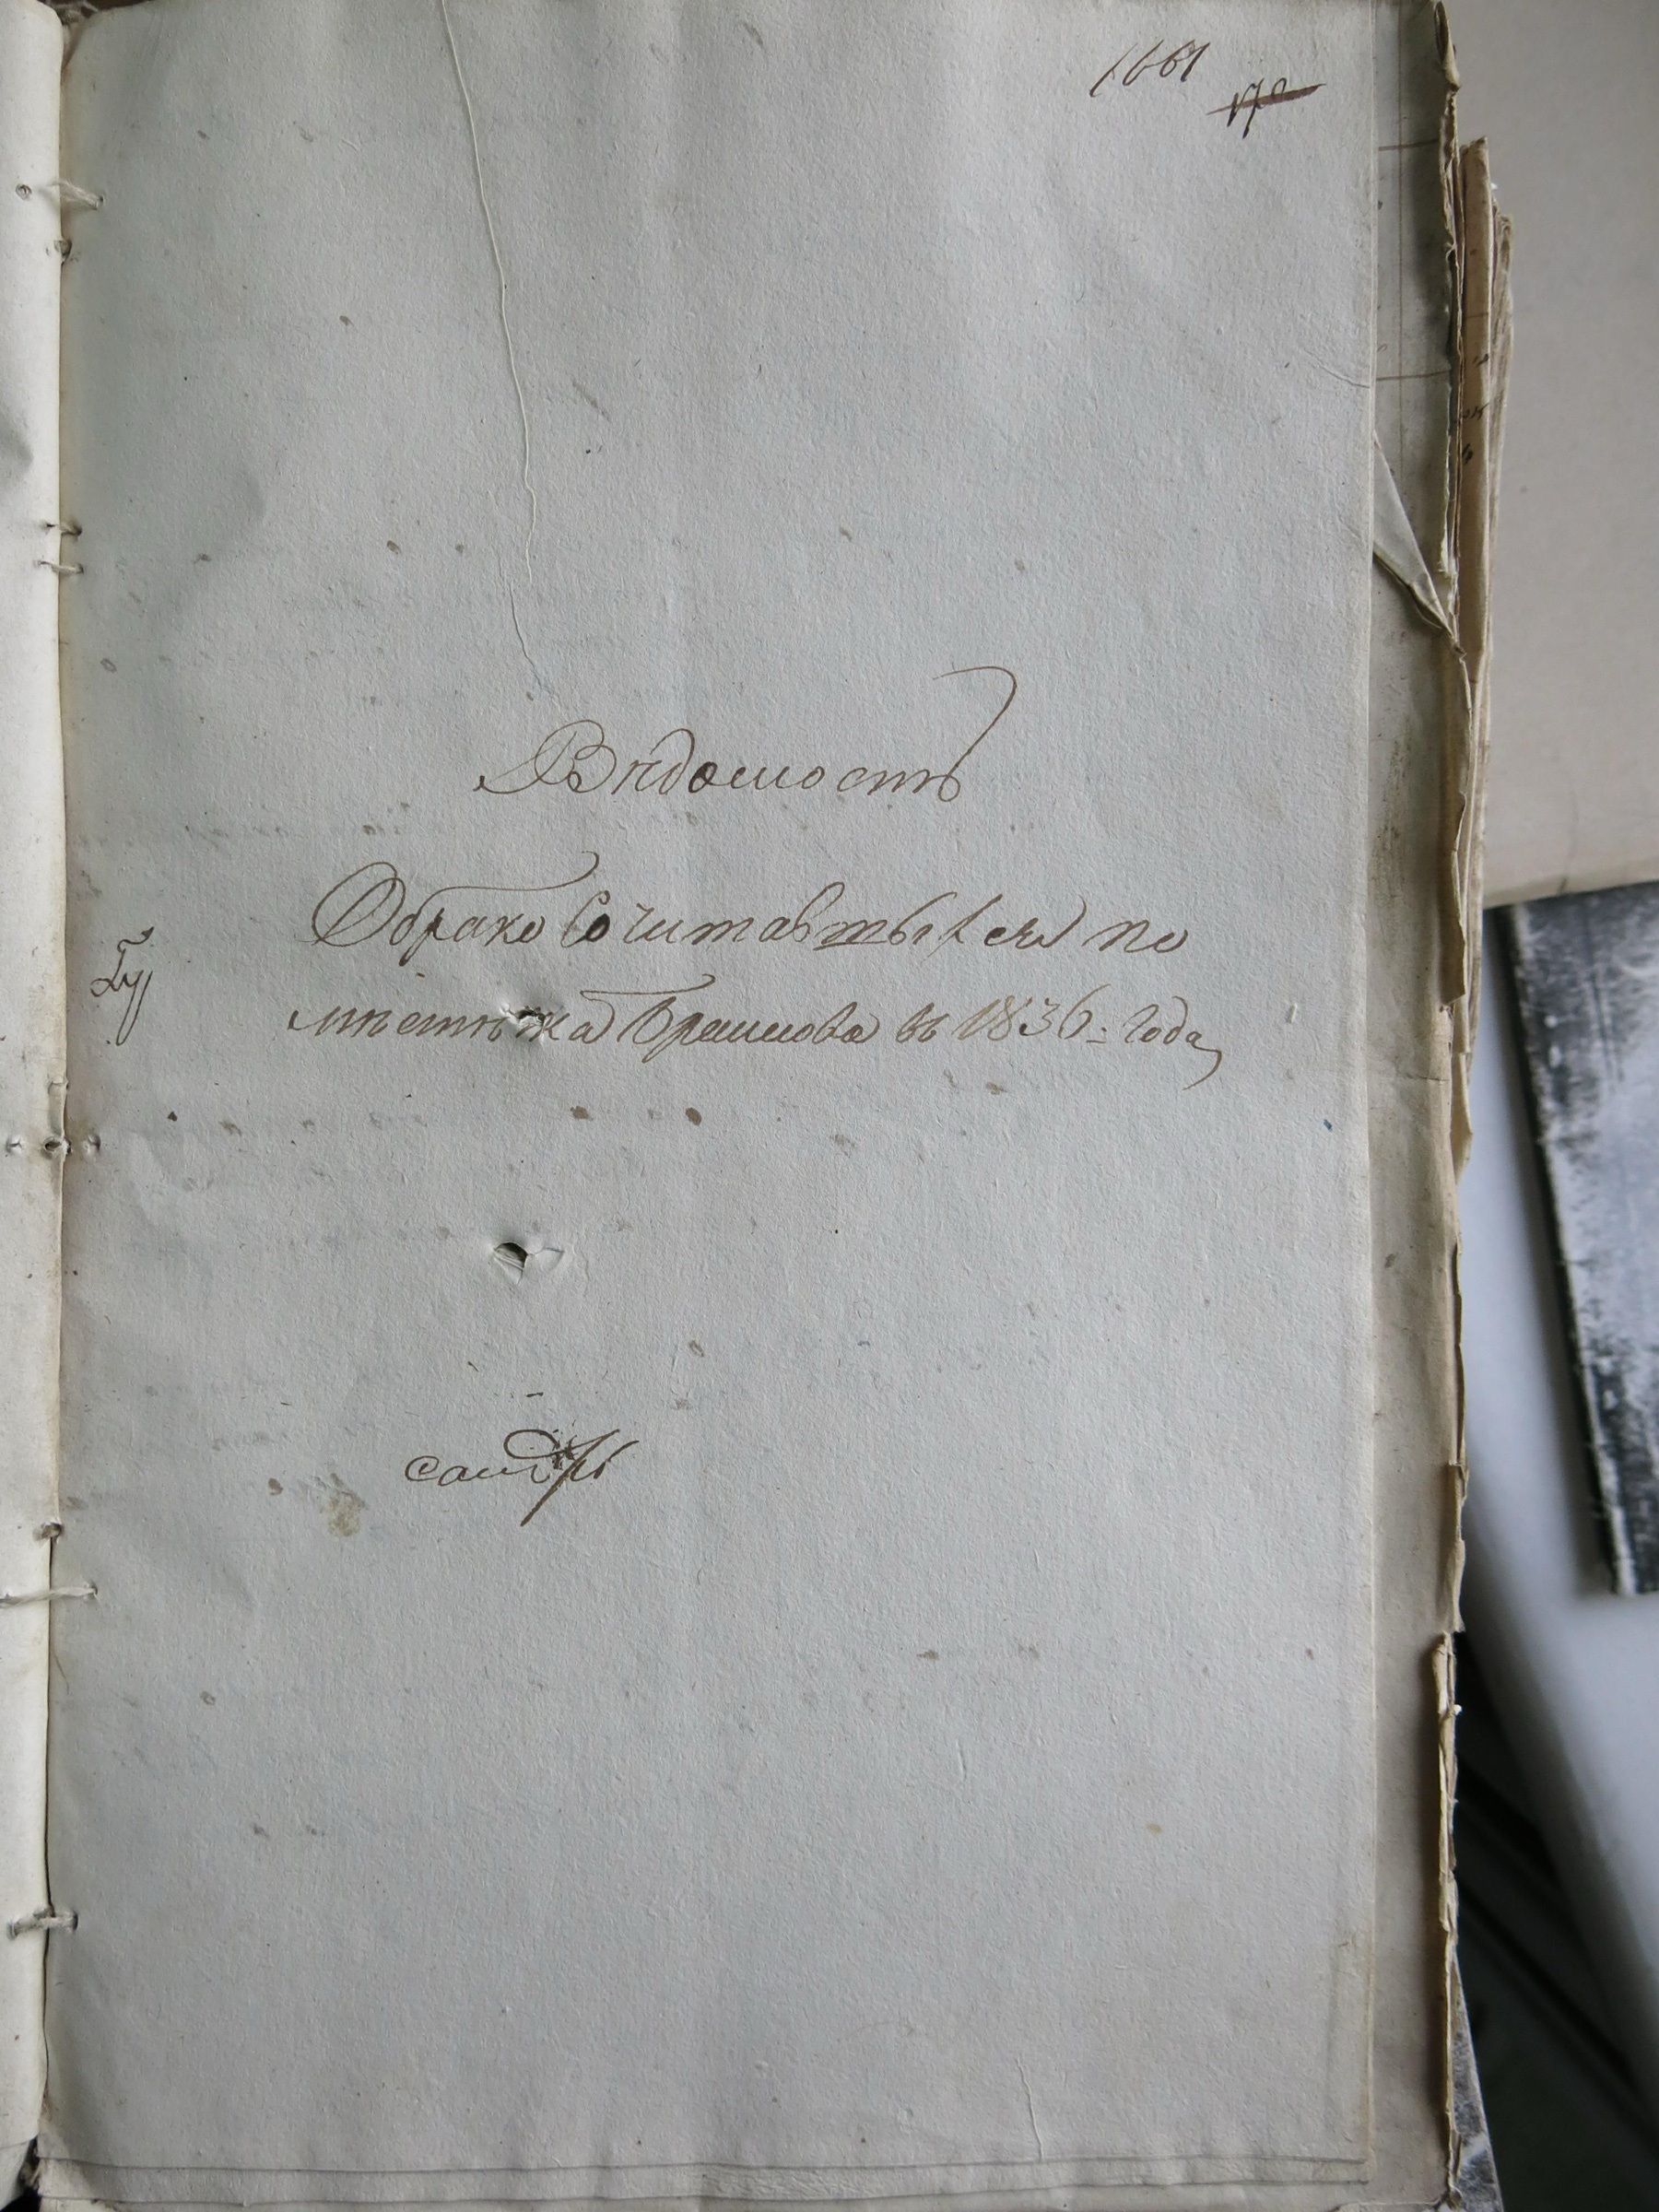 1661
172
Вѣдомость
Обрако Сочитавшыхся по
мѣстѣчка Браилова въ 1836: года